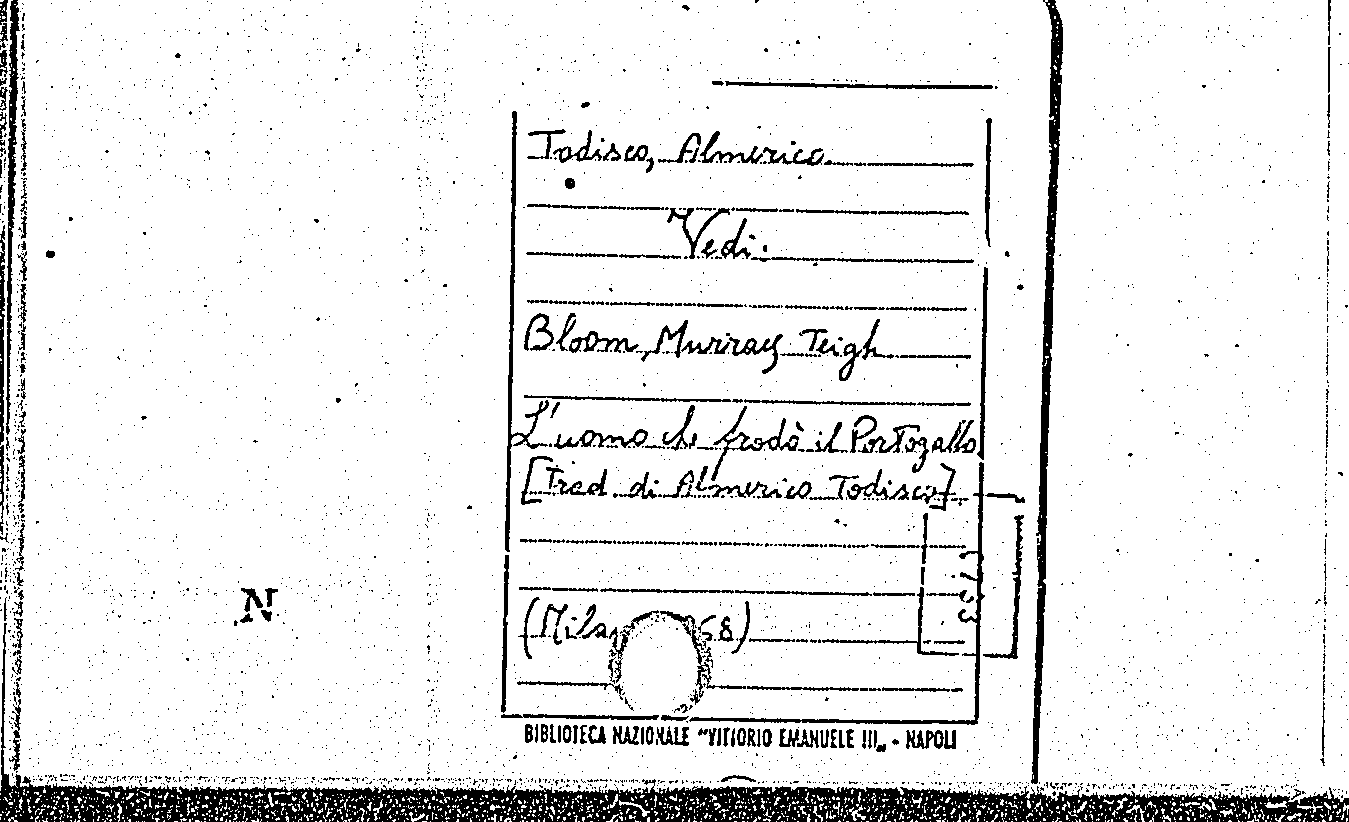 Todisco, Almerico.
Vedi:
Bloom, Murray Teigh
L'uomo che frodò il Portogallo
[Trad. di Almerico Todisco].
N
BIBLIOTECA NAZIONALE "VITTORIO EMANUELE III„ - NAPOLI